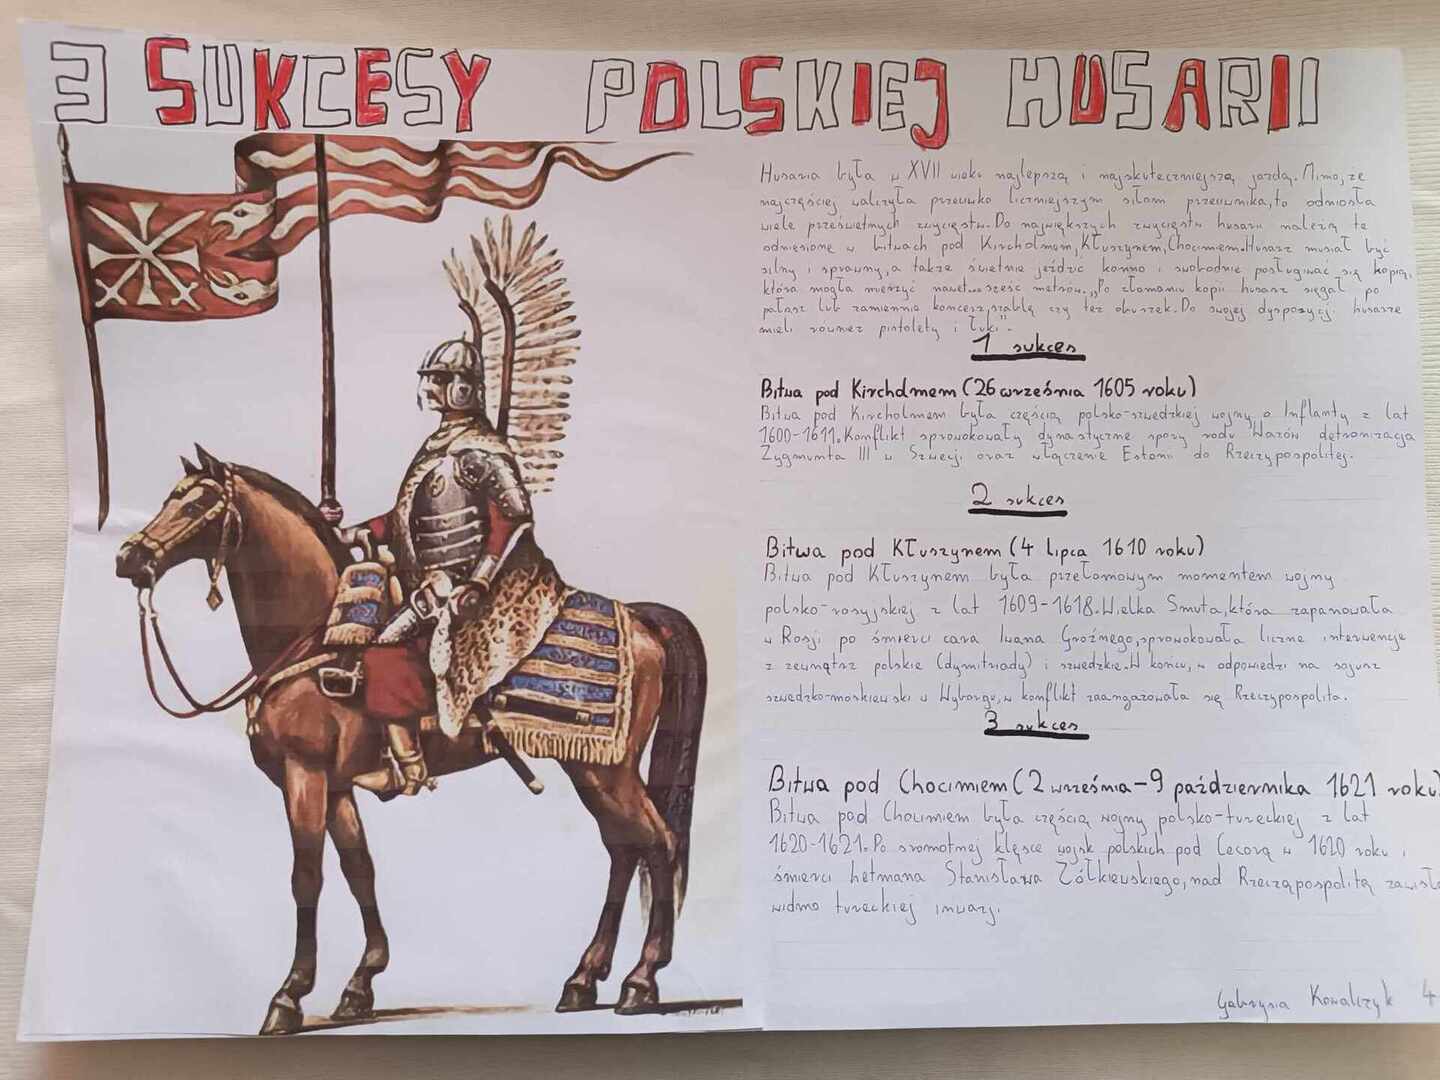 3 SUKCESY POLSKIEJ HUSARII
Husaria była w XVII wieku najlepszą i najskuteczniejszą jazdą. Mimo, że
najczęściej walczyła przeciwko liczniejszym siłom przeciwnika, to odniosła
wiele prześwietnych zwycięstw. Do największych zwycięstw husarii należą te
odniesione w bitwach pod Kircholmem, Kłuszynem, Chocimiem. Husarz musiał być
silny i sprawny, a także świetnie jeździć konno i swobodnie posługiwać się kopią,
która mogła mierzyć nawet...sześć metrów. „Po złamaniu kopii husarz sięgał po
pałasz lub zamiennie koncerz, szablę czy też obuszek. Do swojej dyspozycji husarze
mieli również pistolety i łuki".
1 sukces
Bitwa pod Kircholmem (26 września 1605 roku)
Bitwa pod Kircholmem była częścią polsko-szwedzkiej wojny o Inflanty z lat
1600-1611. Konflikt sprowokowały dynastyczne spory rodu Wazów detronizacja
Zygmunta III w Szwecji oraz włączenie Estonii do Rzeczypospolitej.
2 sukces
Bitwa pod Kłuszynem (4 lipca 1610 roku)
Bitwa pod Kłuszynem była przełomowym momentem wojny
polsko-rosyjskiej z lat 1609-1618. Wielka Smuta, która zapanowała
w Rosji po śmierci cara Iwana Groźnego, sprowokowała liczne interwencje
z zewnątrz polskie (dymitriady) i szwedzkie. W końcu, w odpowiedzi na sojusz
szwedzko-moskiewski w Wyborgu, w konflikt zaangażowała się Rzeczpospolita.
3 sukces
Bitwa pod Chocimiem (2 września-9 października 1621 roku)
Bitwa pod Chocimiem była częścią wojny polsko-tureckiej z lat
1620-1621. Po sromotnej klęsce wojsk polskich pod Cecorą w 1620 roku i
śmierci hetmana Stanisława Żółkiewskiego, nad Rzecząpospolitą zawisło
widmo tureckiej inwazji.
Gabrysia Kowalczyk 4